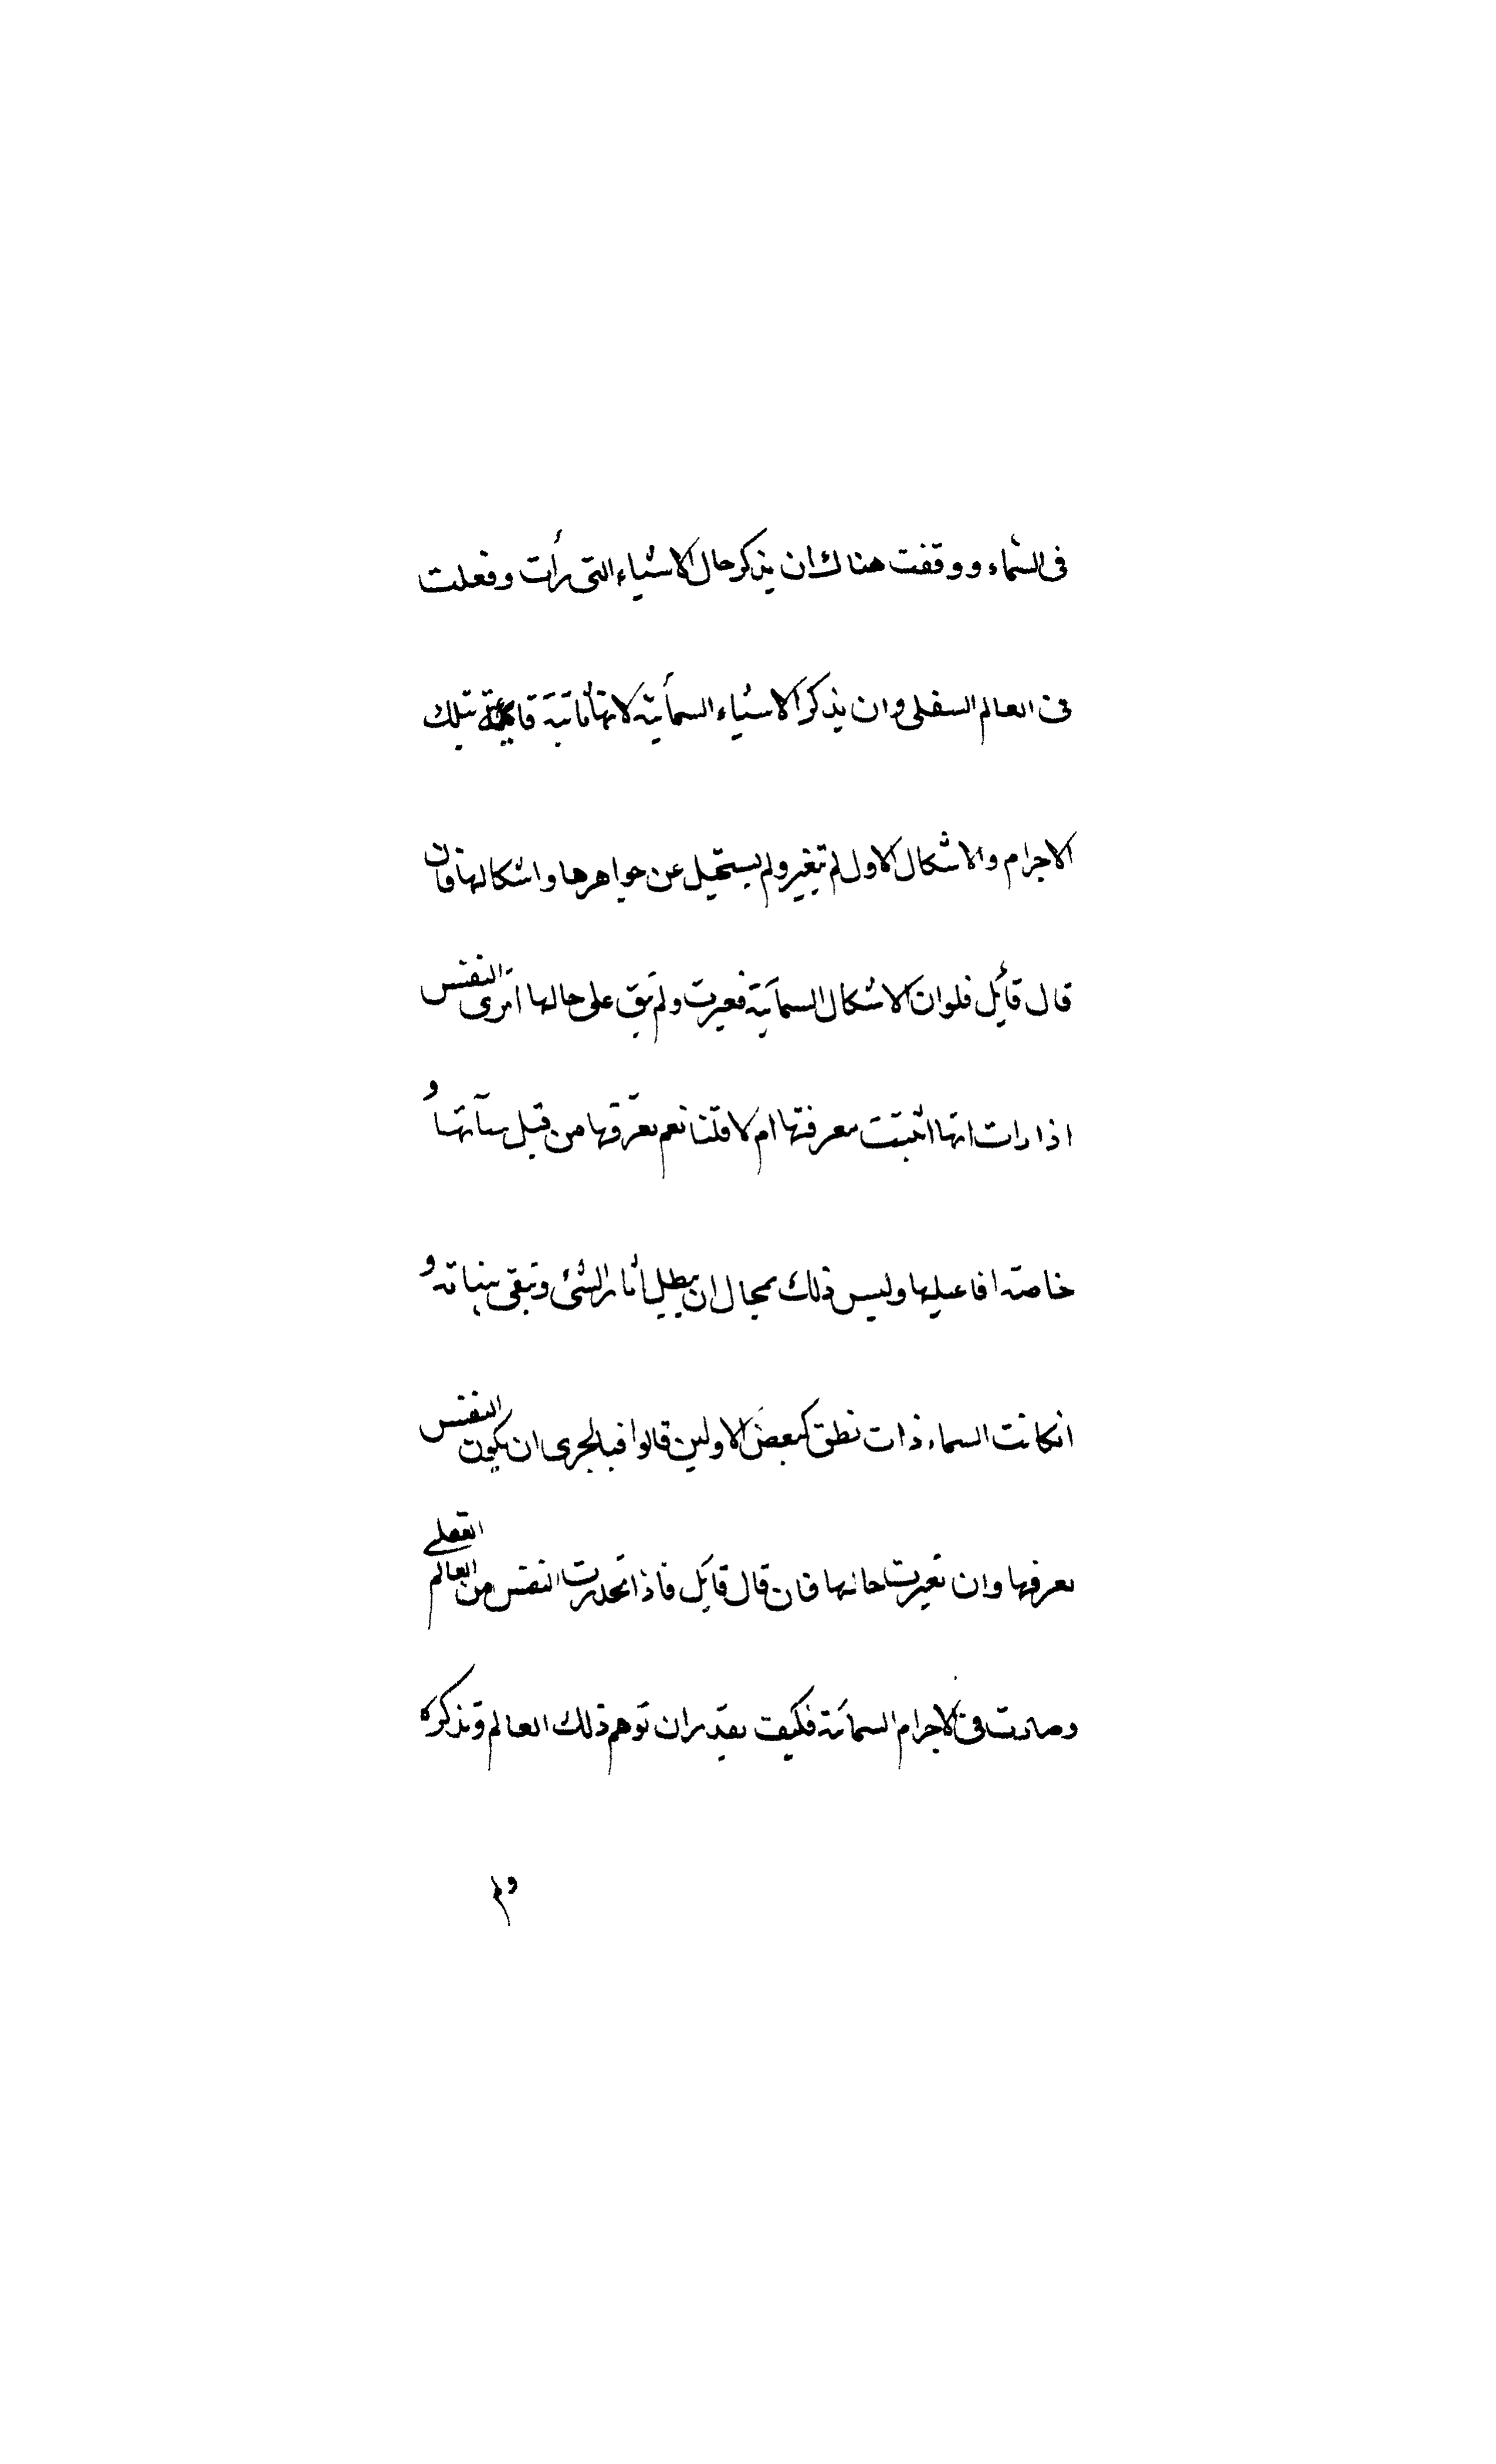 فى السماء ووقفت هناك ان يذكر حال الاشياء التى رأت وفعلت
فى العالم السفلى وان يذكر الاشياء السمائية لانها ثابتة قايمة بتلك
الاجرام والاشكال الاول لم تغير ولم يستحيل عن جواهرها واشكالها فان
قال قائل فلو ان الاشكال السمائية تغيرت ولم تبق على حالها اترى النفس
اذا رات انها اثبتت معرفتها ام لا قلنا نعم تعرفها من قبل هيآتها و
خاصة افاعيلها وليس ذلك بمحال ان يبطل اثار الشئ وتبقى هيئاته و
انكانت السماء ذات نطق كبعض الاولين قالوا فبالحرى ان يكون النفس
تعرفها وان تغيرت حالها فان قال قائل فاذا تحدرت النفس من العالم العقلى
وصارت فى الاجرام السمائية فكيف يقدر ان توهم ذلك العالم وتذكره
ولم